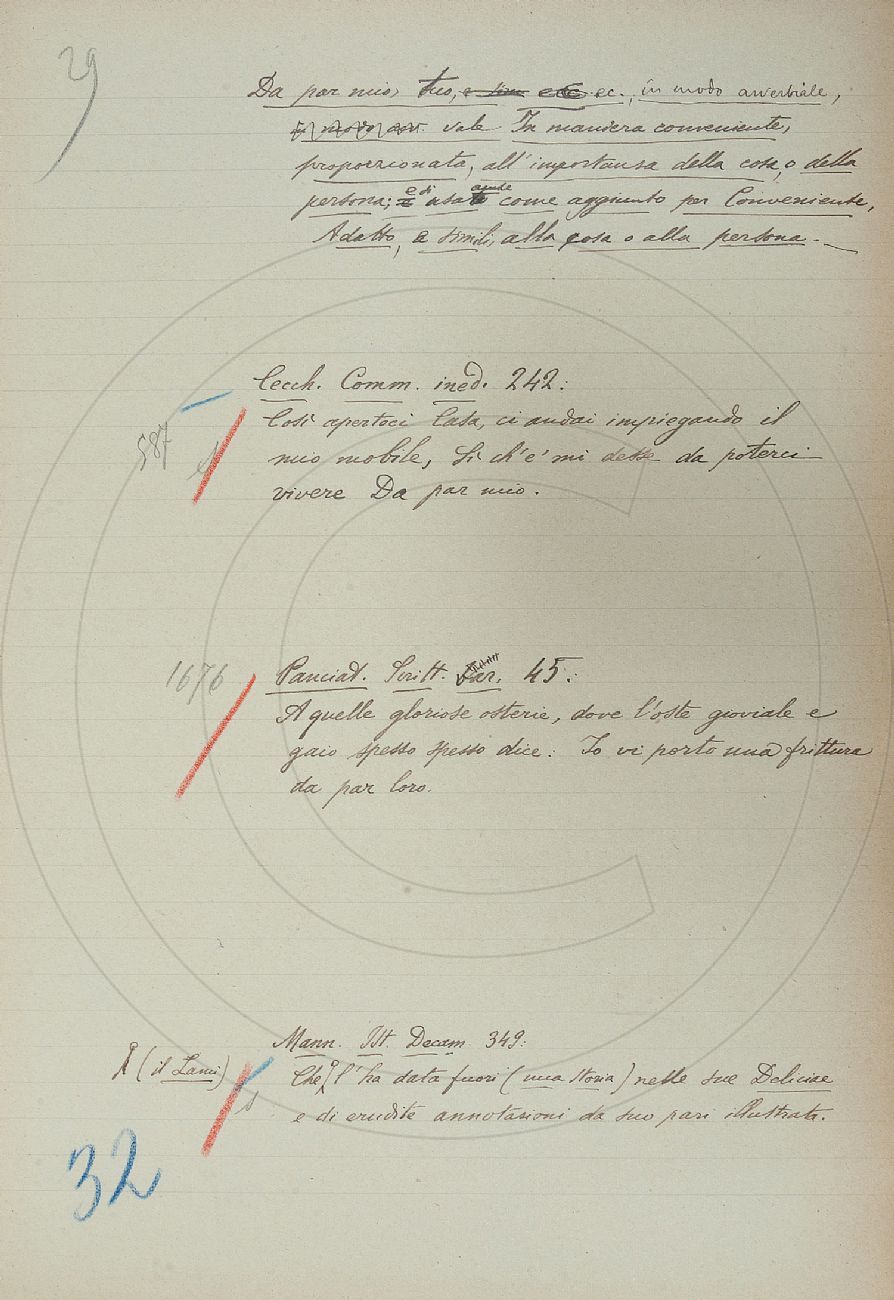 29
Da par mio, tuo, e sim. ecc. ec., in modo avverbiale,
in modo avv. vale In maniera conveniente,
proporzionata, all'importanza della cosa, o della
persona; e di usasi anche come aggiunto per Conveniente,
Adatto, e simili, alla cosa o alla persona. —
Cecch. Comm. ined. 242:
587
Così apertoci Casa, ci andai impiegando il
mio mobile, Sì ch'e' mi desse da poterci
vivere Da par mio.
1676
Panciat. Scritt. Var. 45:
A quelle gloriose osterie, dove l'oste gioviale e
gaio spesso spesso dice: Io vi porto una frittura
da par loro.
Mann. Ist. Decam. 349:
(il Lami)
Che l'ha data fuori (una storia) nelle sue Deliciae
e di erudite annotazioni da suo pari illustrata.
32